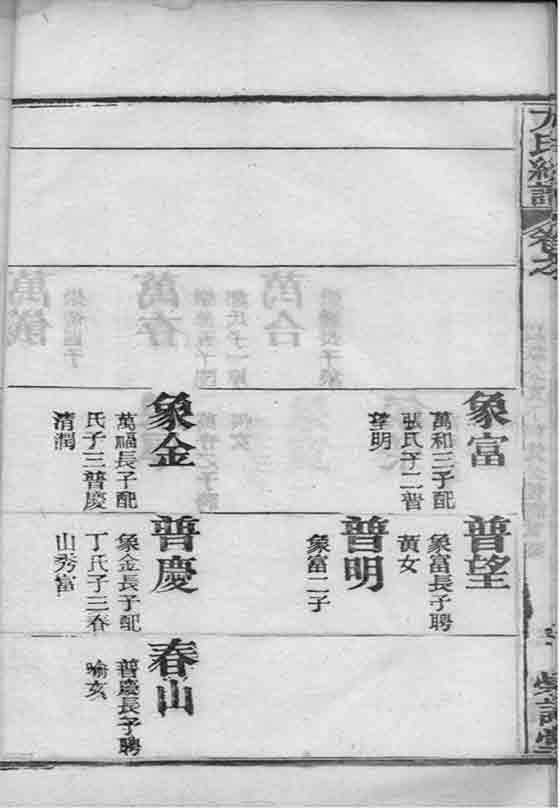 卷之
象富
萬和三子配
張氏子二普
望明
象金
萬福長子配
氏子三普慶
清潤
普望
象富長子聘
黃女
普明
象富二子
普慶
象金長子配
丁氏子三春
山秀富
春山
普慶長子聘
喻女